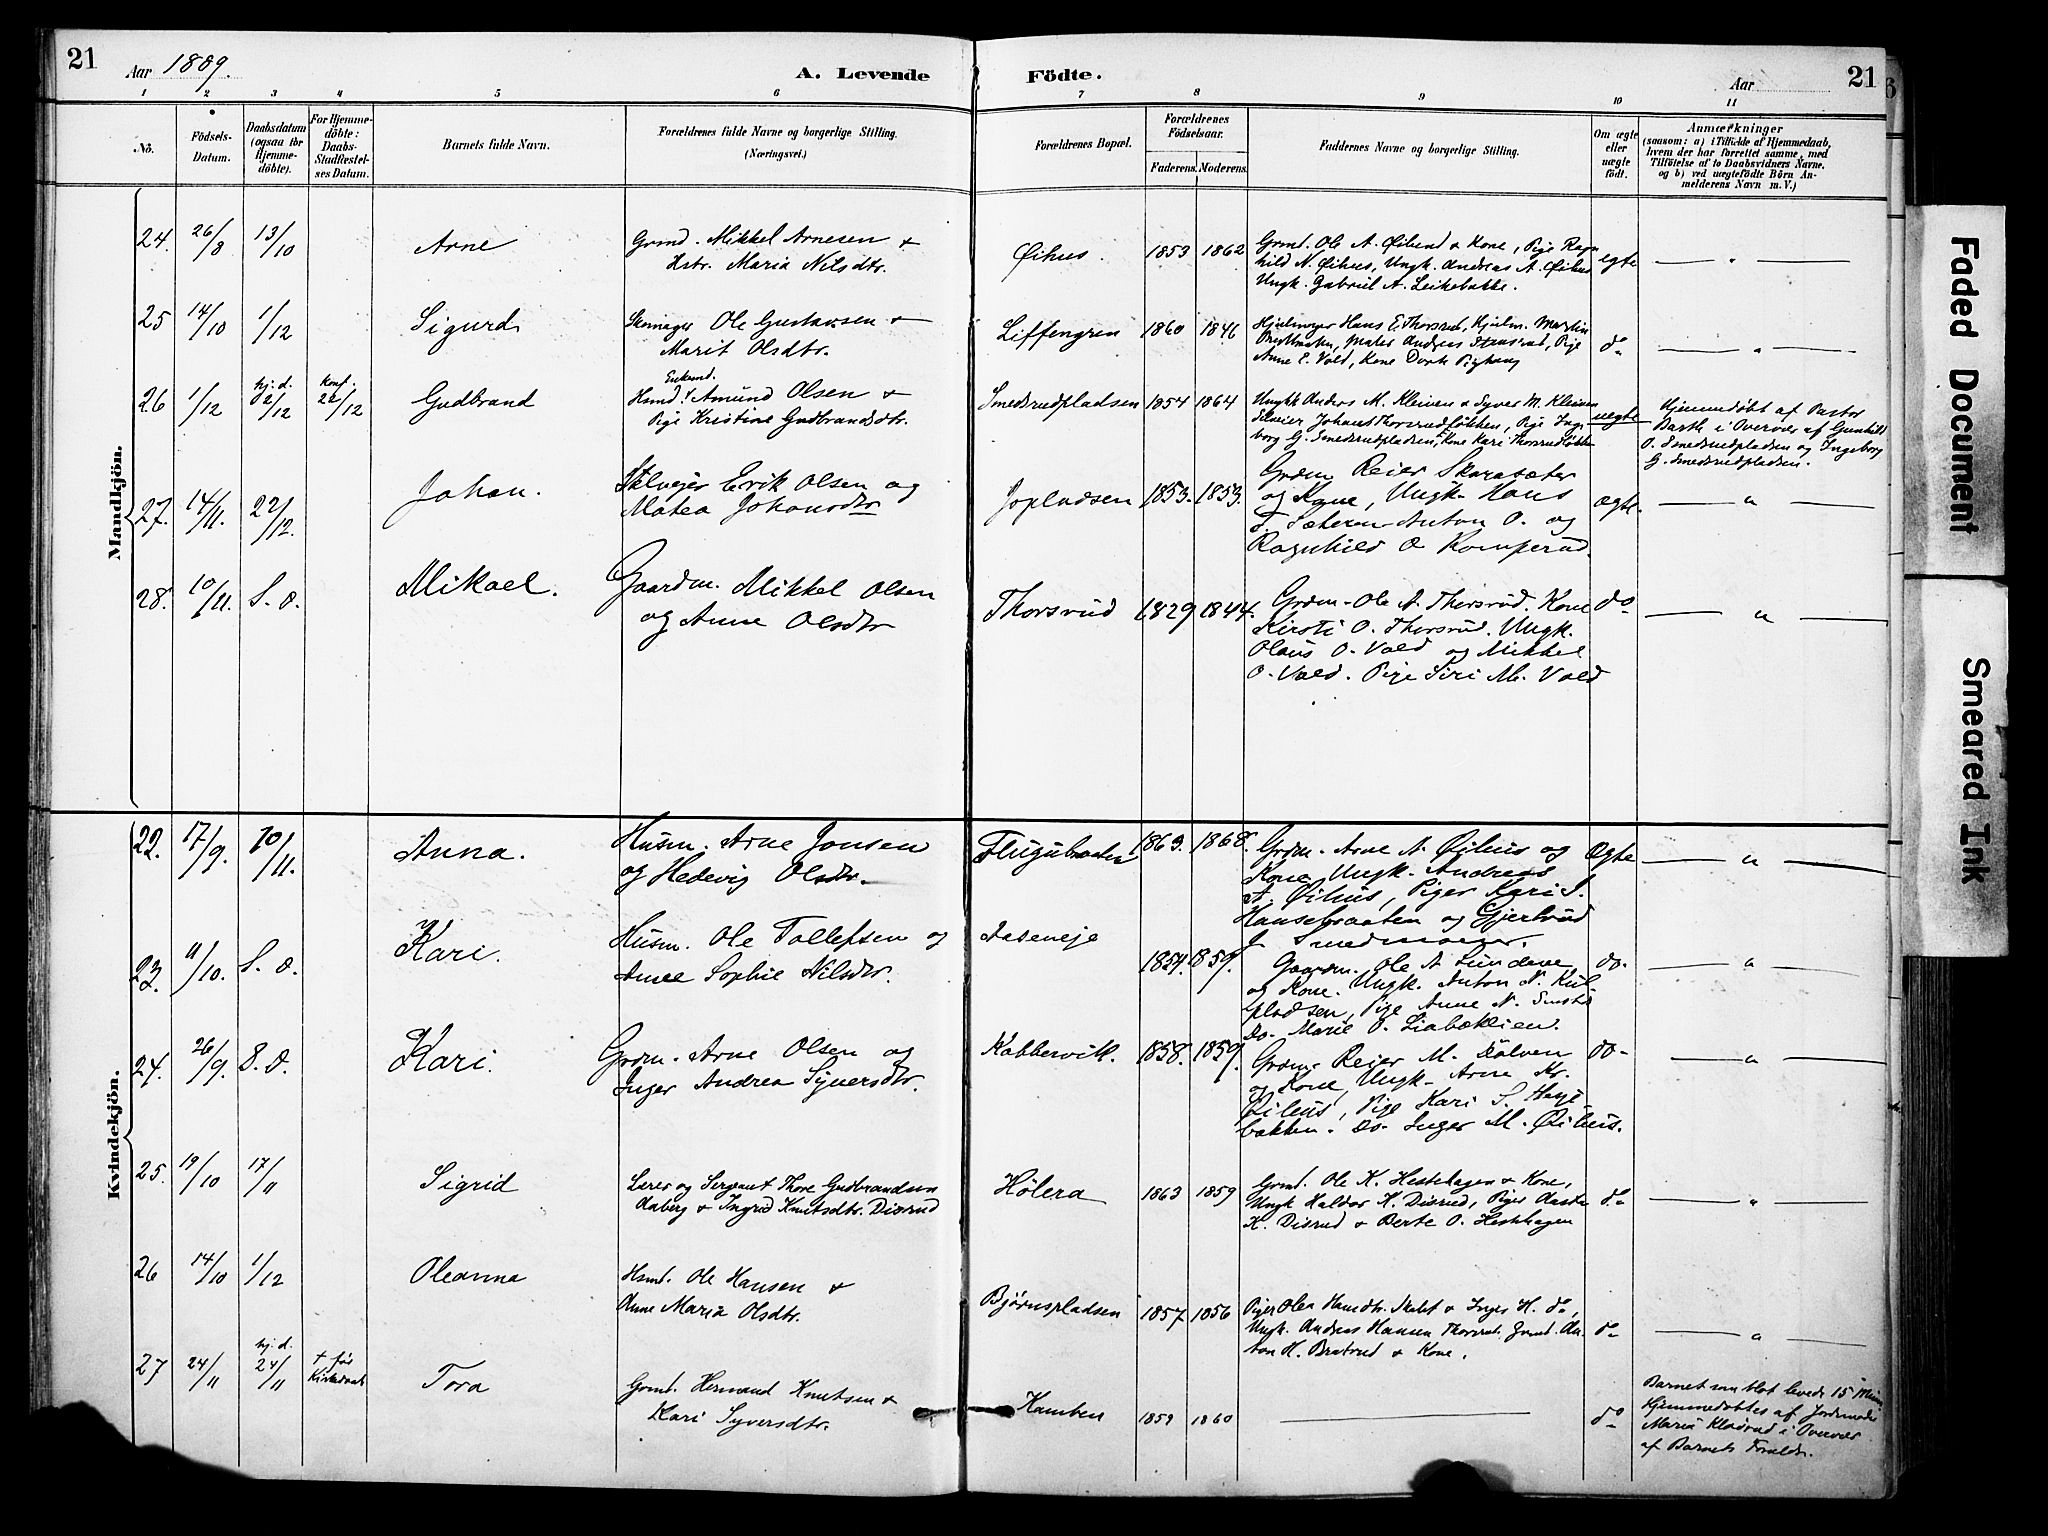 21
Aar 1889.
A. Levende Födte.
Aar
21
1 2 3 4 5 6 7 8 9 10 11
No.
Födsels-Datum.
Daabsdatum (ogsaa for Hjemme-döbte).
For Hjemme-döbte: Daabs-Stadfæstel-ses Datum.
Barnets fulde Navn.
Forældrenes fulde Navne og borgerlige Stilling.
(Næringsvei.)
Forældrenes Bopæl.
Forældrenes Födselsaar.
Faderens. Moderens.
Faddernes Navne og borgerlige Stilling.
Om ægte eller uægte födt.
Anmærkninger
(saasom: a) i Tilfælde af Hjemmedaab,
hvem der har forrettet samme, med
Tilföielse af to Daabsvidners Navne.
og b) ved uægtefödte Börn An-
melderens Navn m. V.)
Mandkjön.
24. 26/8 13/10 Arne
Grmd. Mikkel Arnesen +
Hstr. Maria Nilsdtr.
Øihus. 1853 1862
Grmd. Ole A. Øilund + Kone, Pige Ragn
hild N. Øihus, Ungk. Andreas A. Øihus
Ungk. Gabriel A. Leikebakke.
egte
25 14/10 1/12 Sigurd
Skomager Ole Gustavsen +
Marit Olsdtr.
Liffengren 1860 1846
Hans E. Thorsrud, Hjulm. Martin
Maler Andreas Pige
Anne E. Vold, Kone Dorte
do
26 1/12 hj. d. 2/12 konf. 22/12 Gudbrand
Enkemd.
Hsmd. Amund Olsen +
Pige Kristine Gudbrandsdtr.
Smedsrudpladsen 1854 1864
Ungkk Anders M. Kleiven + Syver M. Kleiven
Selveier Johans Thorsrudløkken, Pige Inge
borg G. Smedsrudpladsen, Kone Kari Thorsrudløkken
uegte
Hjemmedøbt af Pastor
Barth i Overvær af Gunhild
O. Smedsrudpladsen og Ingeborg
G. Smedsrudpladsen.
27. 14/11. 22/12. Johan.
Selvejer Erik Olsen og
Matea Johansdtr
Jopladsen 1853. 1853.
Grdm Reier Skarasæter
og Kone, Ungk. Hans
T. Sæteren Anton O. og
Ragnhild O Komperud.
ægte.
28. 10/11. S. D. Mikael.
Gaardm. Mikkel Olsen
og Anne Olsdtr
Thorsrud 1829 1844.
Grdm. Ole A. Thorsrud. Kone
Kirsti O. Thorsrud. Ungk.
Olaus O. Vold og Mikkel
O. Vold. Pige Siri M. Vold
do
Kvindekjön.
22. 17/9. 10/11. Anna.
Husm. Arne Jonsen
og Hedevig Olsdtr.
Flugubraaten 1863. 1868.
Grdm. Arne A. Øihus og
Kone Ungk. Andreas
A. Øihus, Piger Kari S.
Hansebraaten og Gjertrud
J Smedmoen.
Ægte
23. 11/10. S. D. Kari.
Husm. Ole Tollefsen og
Anne Sophie Nilsdtr.
Aaseneje 1854. 1859.
Gaardm. Ole A Lundene
og Kone. Ungk. Anton N. Kul
pladsen, Pige Anne N.
Do. Marie O. Liabæklien.
do.
24. 26/9. S. D. Kari.
Grdm. Arne Olsen og
Inger Andrea Syversdtr.
Kabbervik. 1858. 1859.
Grdm. Reier M. Dølven
og Kone, Ungk. Arne Kr.
Øihus, Pige Kari S. Hage
bakken. Do. Inger M. Øihus.
do.
25. 19/10 17/11 Sigrid
Lærer og Sergeant Thore Gudbrandsen
Aaberg + Ingrid Knutsdtr. Disrud
Hølera 1863 1859
Grmd. Ole K. Hestehagen + Kone,
Ungk Haldor K. Disrud, Piger Aaste
K. Disrud + Berte O. Hestehagen
do
26 14/10 1/12 Oleanna
Hsmd. Ole Hansen +
Anne Maria Olsdtr.
Bjørnspladsen 1857 1856
Piger Olea Hansdtr. + Inger H. do,
Ungk. Andreas Hansen Thorsrud. Grmd. An
ton H. Bratrud + Kone.
do
27 24/11 hj. d. 24/11 + før Kirkedaab Tora
Grmd. Hermand Knutsen +
Kari Syversdtr.
Kamben 1859 1860
do
Barnet som blot levede 15 Min.
Hjemmedøbtes af Jordemoder
Maria Kladrud i Overvær
af Barnets Forældre.
Faded Document
Smeared Ink